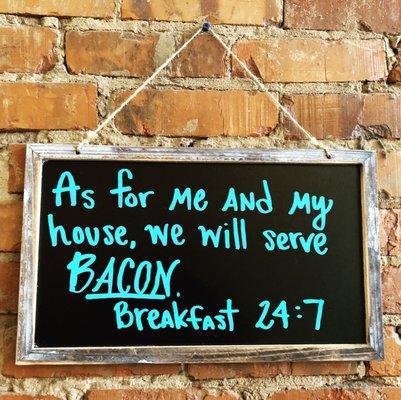 As for me and my
house, we will serve
BACON.
Breakfast 24:7